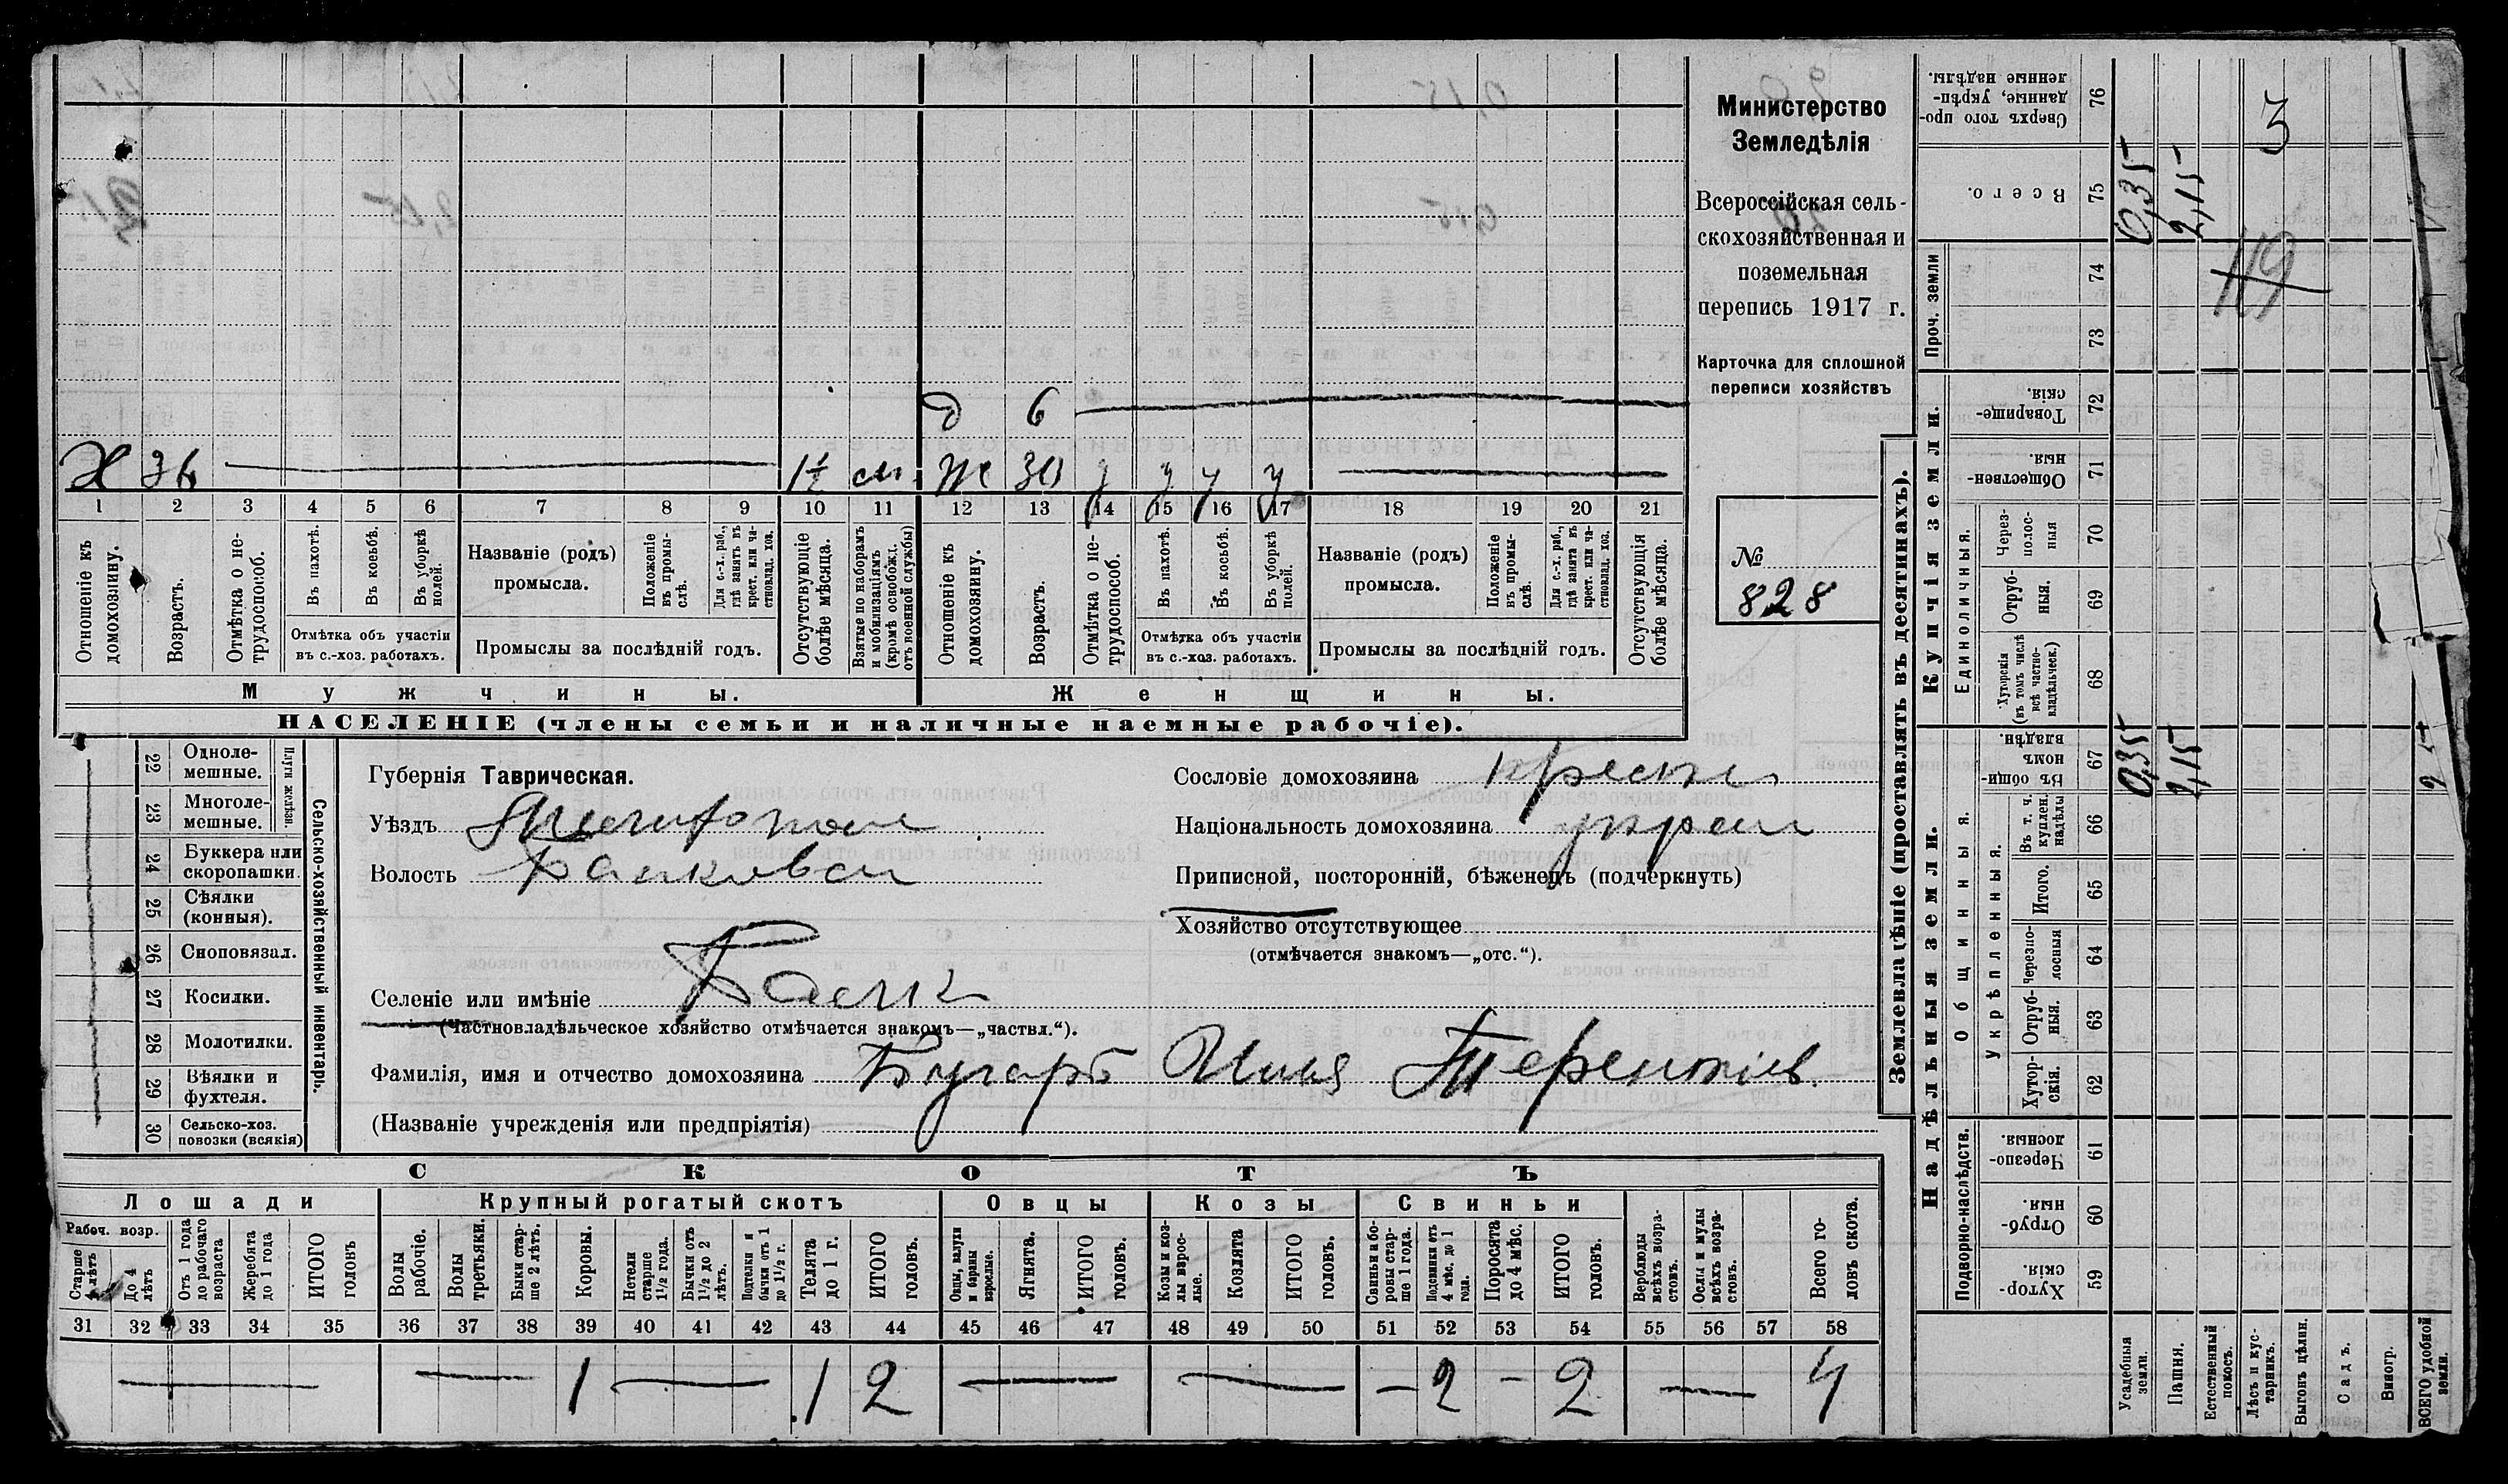 Министерство
Земледѣлія
Всероссійская сель-
скохозяйственная и
поземельная
перепись 1917 г.
Карточка для сплошной
переписи хозяйствъ
№
828
д 6
Х 36
1½ см.
Ж 30 у у у у
1 2 3 4 5 6 7 8 9 10 11 12 13 14 15 16 17 18 19 20 21
Отношеніе къ домохозяину.
Возрастъ.
Отмѣтка о не-трудоспособ.
Въ пахотѣ.
Въ косьбѣ.
Въ уборкѣ полей.
Отмѣтка объ участіи
въ с.-хоз. работахъ.
Названіе (родъ)
промысла.
Положеніе въ промы-слѣ.
Для с.-х. раб., гдѣ занятъ въ крест. или ча-стновлад. хоз.
Промыслы за послѣдній годъ.
Отсутствующіе болѣе мѣсяца.
Взятые по наборамъ и мобилизаціямъ (кромѣ освобожд. отъ военной службы)
Отношеніе къ домохозяину.
Возрастъ.
Отмѣтка о не-трудоспособ.
Въ пахотѣ.
Въ косьбѣ.
Въ уборкѣ полей.
Отмѣтка объ участіи
въ с.-хоз. работахъ.
Названіе (родъ)
промысла.
Положеніе въ промы-слѣ.
Для с.-х. раб., гдѣ занята въ крест. или ча-стновлад. хоз.
Промыслы за послѣдній годъ.
Отсутствующія болѣе мѣсяца.
Мужчины.
Женщины.
НАСЕЛЕНІЕ (члены семьи и наличные наемные рабочіе).
22 Одноле-мешные.
23 Многоле-мешные.
Плуги желѣзн.
24 Буккера или скоропашки.
25 Сѣялки (конныя).
26 Сноповязал.
27 Косилки.
28 Молотилки.
29 Вѣялки и фухтеля.
30 Сельско-хоз. повозки (всякія)
Сельско-хозяйственный инвентарь.
Губернія Таврическая.
Уѣздъ
Волость Балковск
Селеніе или имѣніе Балки
(Частновладѣльческое хозяйство отмѣчается знакомъ—„частвл.“).
Фамилія, имя и отчество домохозяина Бугаръ Илья Терентіев.
(Названіе учрежденія или предпріятія)
Сословіе домохозяина
Національность домохозяина украи
Приписной, посторонній, бѣженецъ (подчеркнуть)
Хозяйство отсутствующее
(отмѣчается знакомъ—„отс.“).
СКОТЪ
Лошади
Крупный рогатый скотъ
Овцы
Козы
Свиньи
Рабоч. возр.
Старше 4 лѣтъ
До 4 лѣтъ
Отъ 1 года до рабочаго возраста
Жеребята до 1 года
ИТОГО головъ
Волы рабочіе.
Волы третьяки.
Быки стар-ше 2 лѣтъ.
Коровы.
Нетели старше 1½ года.
Бычки отъ 1½ до 2 лѣтъ.
Подтелки и бычки отъ 1 до 1½ г.
Телята до 1 г.
ИТОГО головъ.
Овцы, валухи и бараны взрослые.
Ягнята.
ИТОГО головъ.
Козы и коз-лы взрос-лые.
Козлята
ИТОГО головъ.
Свиньи и бо-ровы стар-ше 1 года.
Подсвинки отъ 4 мѣс. до 1 года.
Поросята до 4 мѣс.
ИТОГО головъ.
Верблюды всѣхъ возра-стовъ.
Ослы и мулы всѣхъ возра-стовъ.
Всего го-ловъ скота.
31 32 33 34 35 36 37 38 39 40 41 42 43 44 45 46 47 48 49 50 51 52 53 54 55 56 57 58
1 1 2 2 2 4
Землевладѣніе (проставлять въ десятинахъ).
Надѣльныя земли.
Купчія земли.
Проч. земли
Подворно-наслѣдств.
Общинныя.
Укрѣпленныя.
Единоличныя.
Сверхъ того про-данные, укрѣп-ленные надѣлы. 76
Всего. 75
74
73
Товарище-скія. 72
Обществен-ныя. 71
Через-полос-ныя 70
Отруб-ныя. 69
Хуторскія (въ томъ числѣ всѣ частно-владѣльческ.) 68
Въ общи-номъ владѣн. 67
Въ т. ч. куплен. надѣлы 66
Итого. 65
Черезпо-лосныя 64
Отруб-ныя. 63
Хутор-скія. 62
Черезпо-лосныя. 61
Отруб-ныя. 60
Хутор-скія. 59
Усадебныя земли.
Пашня.
Естественный покосъ.
Лѣсъ и кус-тарникъ.
Выгонъ цѣлин.
Садъ.
Виногр.
ВСЕГО удобной земли.
0,35
2,15
0,35
2,15
3
119